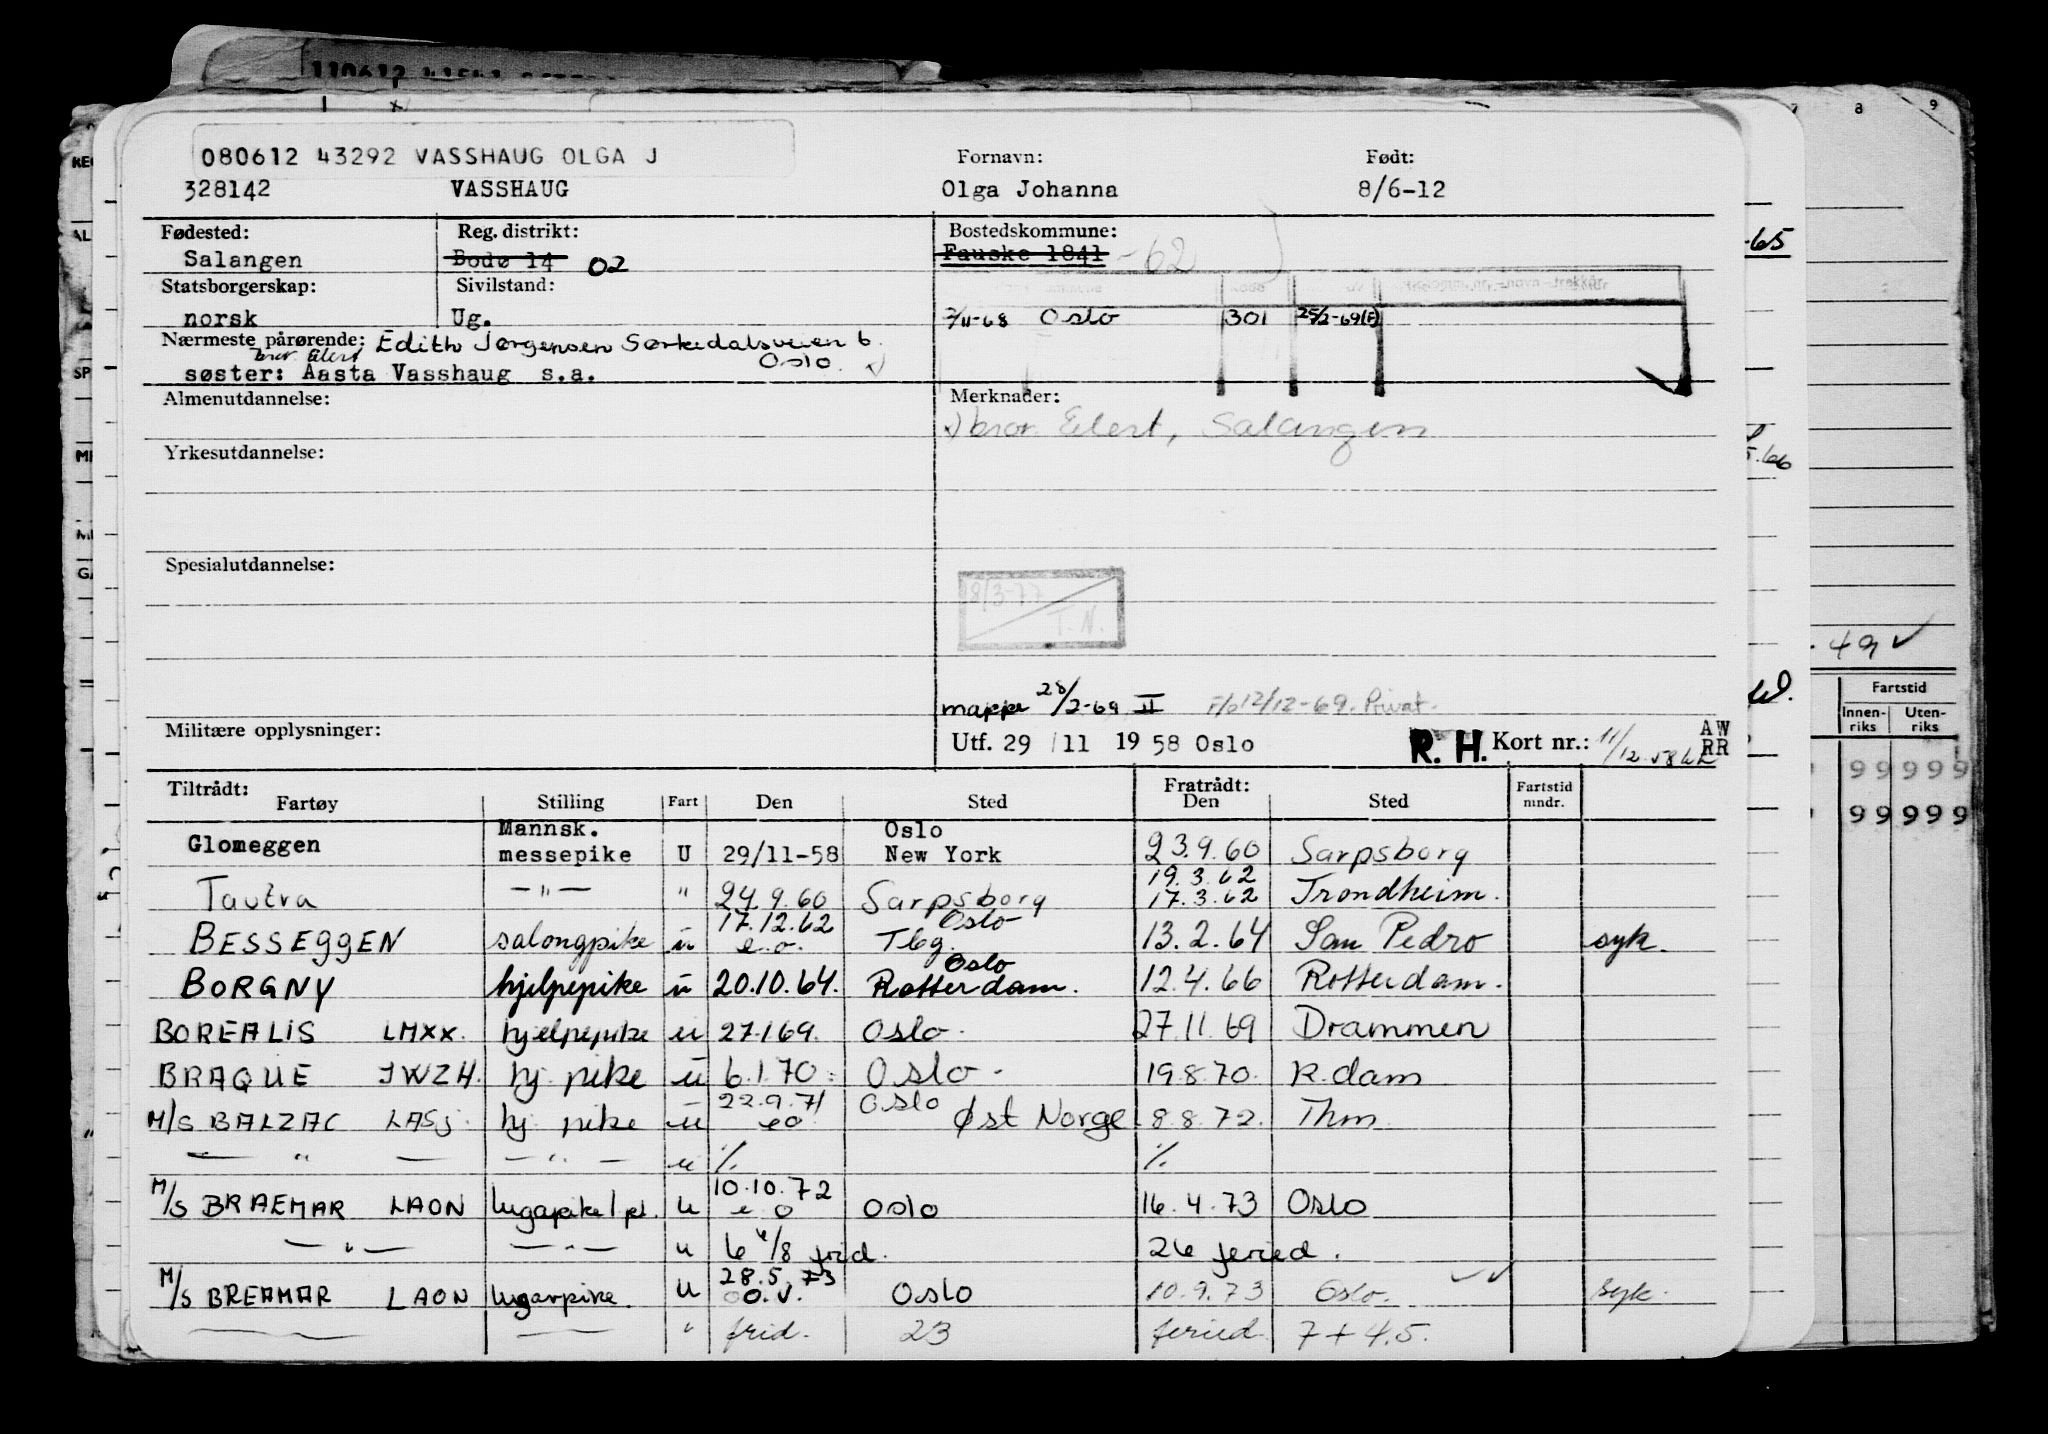 080612 43292 VASSHAUG OLGA J
Fornavn: Født:
328142 VASSHAUG Olga Johanna 8/6-12
Fødested: Reg. distrikt: Bostedskommune:
Salangen Bodø 14 02 Fauske 1841 -62
Statsborgerskap: Sivilstand:
norsk Ug. 7/11-68 Oslo 301 25/2-69(F)
Nærmeste pårørende: Edith Jørgensen Sørkedalsveien 6
bror. Eilert Oslo.
søster: Aasta Vasshaug s.a.
Almenutdannelse: Merknader:
bror. Eilert, Salangen
Yrkesutdannelse:
Spesialutdannelse:
18/3-77
T.N.
mappe 28/2-69 II 12/12-69. Privat.
Militære opplysninger: Utf. 29/11 1958 Oslo R. H. Kort nr.: 11/12.58 AW
RR
Tiltrådt: Fratrådt:
Fartøy Stilling Fart Den Sted Den Sted Fartstid mndr.
Glomeggen Mannsk. messepike U 29/11-58 Oslo New York 23.9.60 Sarpsborg
Tautra —"— " 24.9.60 Sarpsborg 19.3.62 17.3.62 Trondheim.
BESSEGGEN salongpike u 17.12.62 e.o. Oslo Tbg. 13.2.64 San Pedro syk.
BORGNY hjelpepike u 20.10.64. Oslo Rotterdam. 12.4.66 Rotterdam.
BOREALIS LMXX. hjelpepike u 27.1.69. Oslo. 27.11.69 Drammen
BRAQUE JWZH. hj. pike u 6.1.70. Oslo. 19.8.70. R.dam
M/S BALZAC LASJ. hj. pike u 22.9.71 eo Oslo Øst Norge 8.8.72. Thm.
— " — — " — u % %
M/S BRAEMAR LAON lugapike/pl. u 10.10.72 e.o Oslo 16.4.73 Oslo
— " — — " — u 6 4/8 frid. 26 feried.
M/S BREAMAR LAON lugarpike. u 28.5.73 O.V. Oslo 10.9.73 Oslo. Syk.
" frid. 23 feried 7+4.5.
7 8 9
-65
.66
49 ✓
Fartstid
Innenriks Utenriks
9 9 9 9 9
9 9 9 9 9